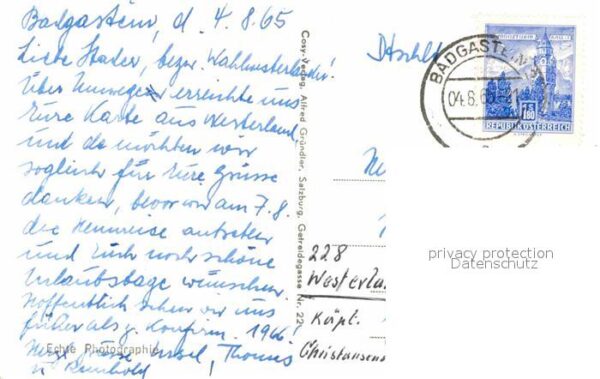 Badgastein, d. 4.8.65
Liebe Stader, bezw. Wahlwesterländer!
Über Umwegen erreichte uns
Eure Karte aus Westerland
und da möchten wir
sogleich für Eure Grüsse
danken, bevor wir am 7.8.
die Heimreise antreten
und Euch noch schöne
Urlaubstage wünschen.
Hoffentlich sehen wir uns
früher als z. Konfirm. 1966!
Herzl. Grüsse Ursel, Thomas
u. Reinhold
Echte Photographie
Cosy-Verlag, Alfred Gründler, Salzburg, Getreidegasse Nr. 22
Dtschld
BADGASTEIN
04.8.65
1.80
REPUBLIK ÖSTERREICH
228
Westerla
Käpt.
Christiansen
privacy protection
Datenschutz